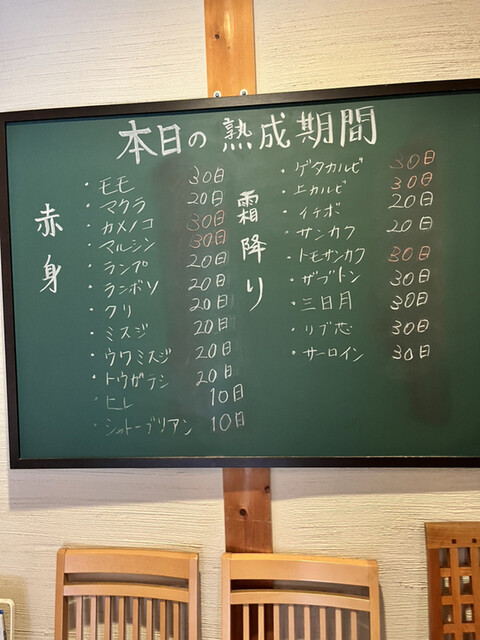 本日の熟成期間
赤身
・モモ 30日
・マクラ 20日
・カメノコ 30日
・マルシン 30日
・ランプ 20日
・ランボソ 20日
・クリ 20日
・ミスジ 20日
・ウワミスジ 20日
・トウガラシ 20日
・ヒレ 10日
・シャトーブリアン 10日
霜降り
・ゲタカルビ 30日
・上カルビ 30日
・イチボ 20日
・サンカク 20日
・トモサンカク 30日
・ザブトン 30日
・三日月 30日
・リブ芯 30日
・サーロイン 30日